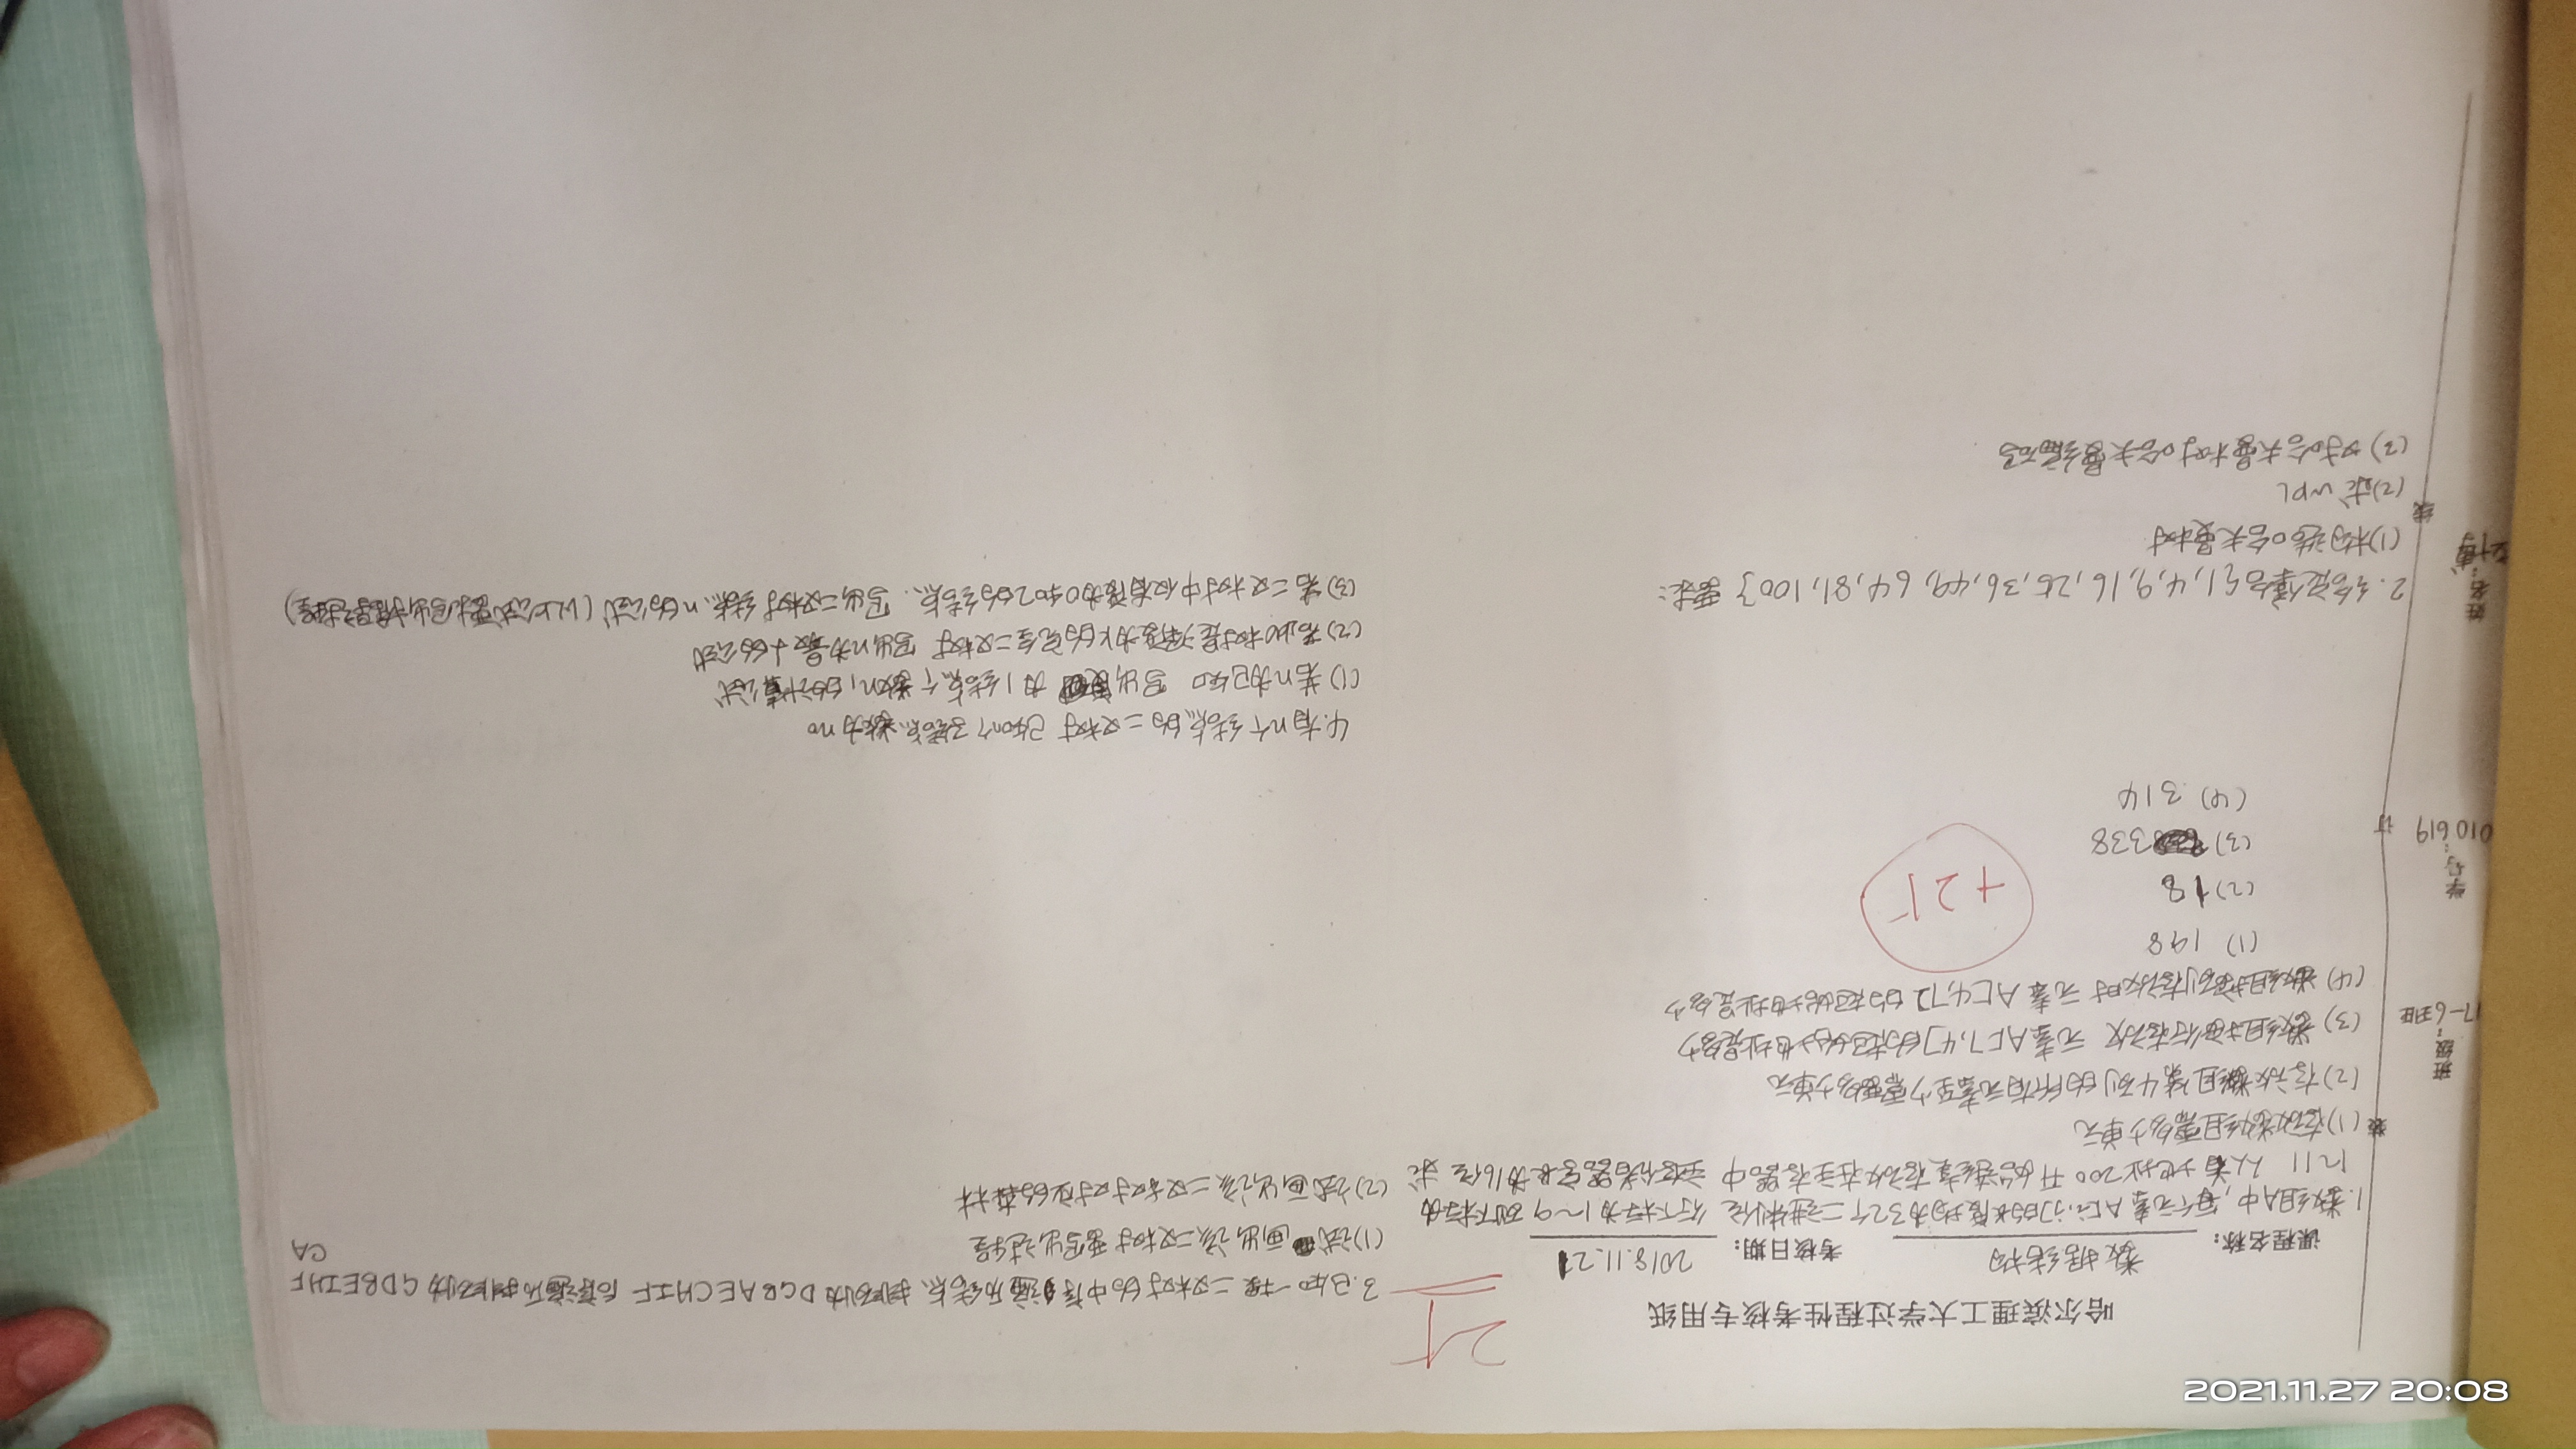 2021.11.27 20:08
25
哈尔滨理工大学过程性考核专用纸
课程名称: 数据结构 考核日期: 2018.11.21
1.数组A中,每个元素A[i,j]的长度均为32个二进制位 行下标为1~9 列下标为
1~11 从首地址200开始连续存放在主存器中 主存储器字长为16位 求
(1)存放数组需多少单元
(2)存放数组第4列的所有元素至少需要多少单元
(3)数组按行存放 元素A[7,4]的起始地址是多少
(4)数组按列存放时 元素A[4,7]的起始地址是多少
(1) 198
(2) 18
(3) 338
(4) 314
+25
2.给定集合{1,4,9,16,25,36,49,64,81,100}要求:
(1)构造哈夫曼树
(2)求WPL
(3)对哈夫曼树哈夫曼编码
装
订
线
班级:
17-6班
学号:
010619
姓名:
博
3.已知一棵二叉树的中序遍历结点排列为DGBAECHIF 后序遍历排列为GDBEIHF
CA
(1)试画出该二叉树要写出过程
(2)试画出该二叉树对应的森林
4.有n个结点的二叉树 已知叶子结点数为n0
(1)若n为已知 写出度为1结点个数n1的计算公式
(2)若此树是深度为k的完全二叉树 写出n为最小的公式
(3)若二叉树中仅有度为0和2的结点.写出二叉树结点n的公式(以上公式要求写出推导过程)